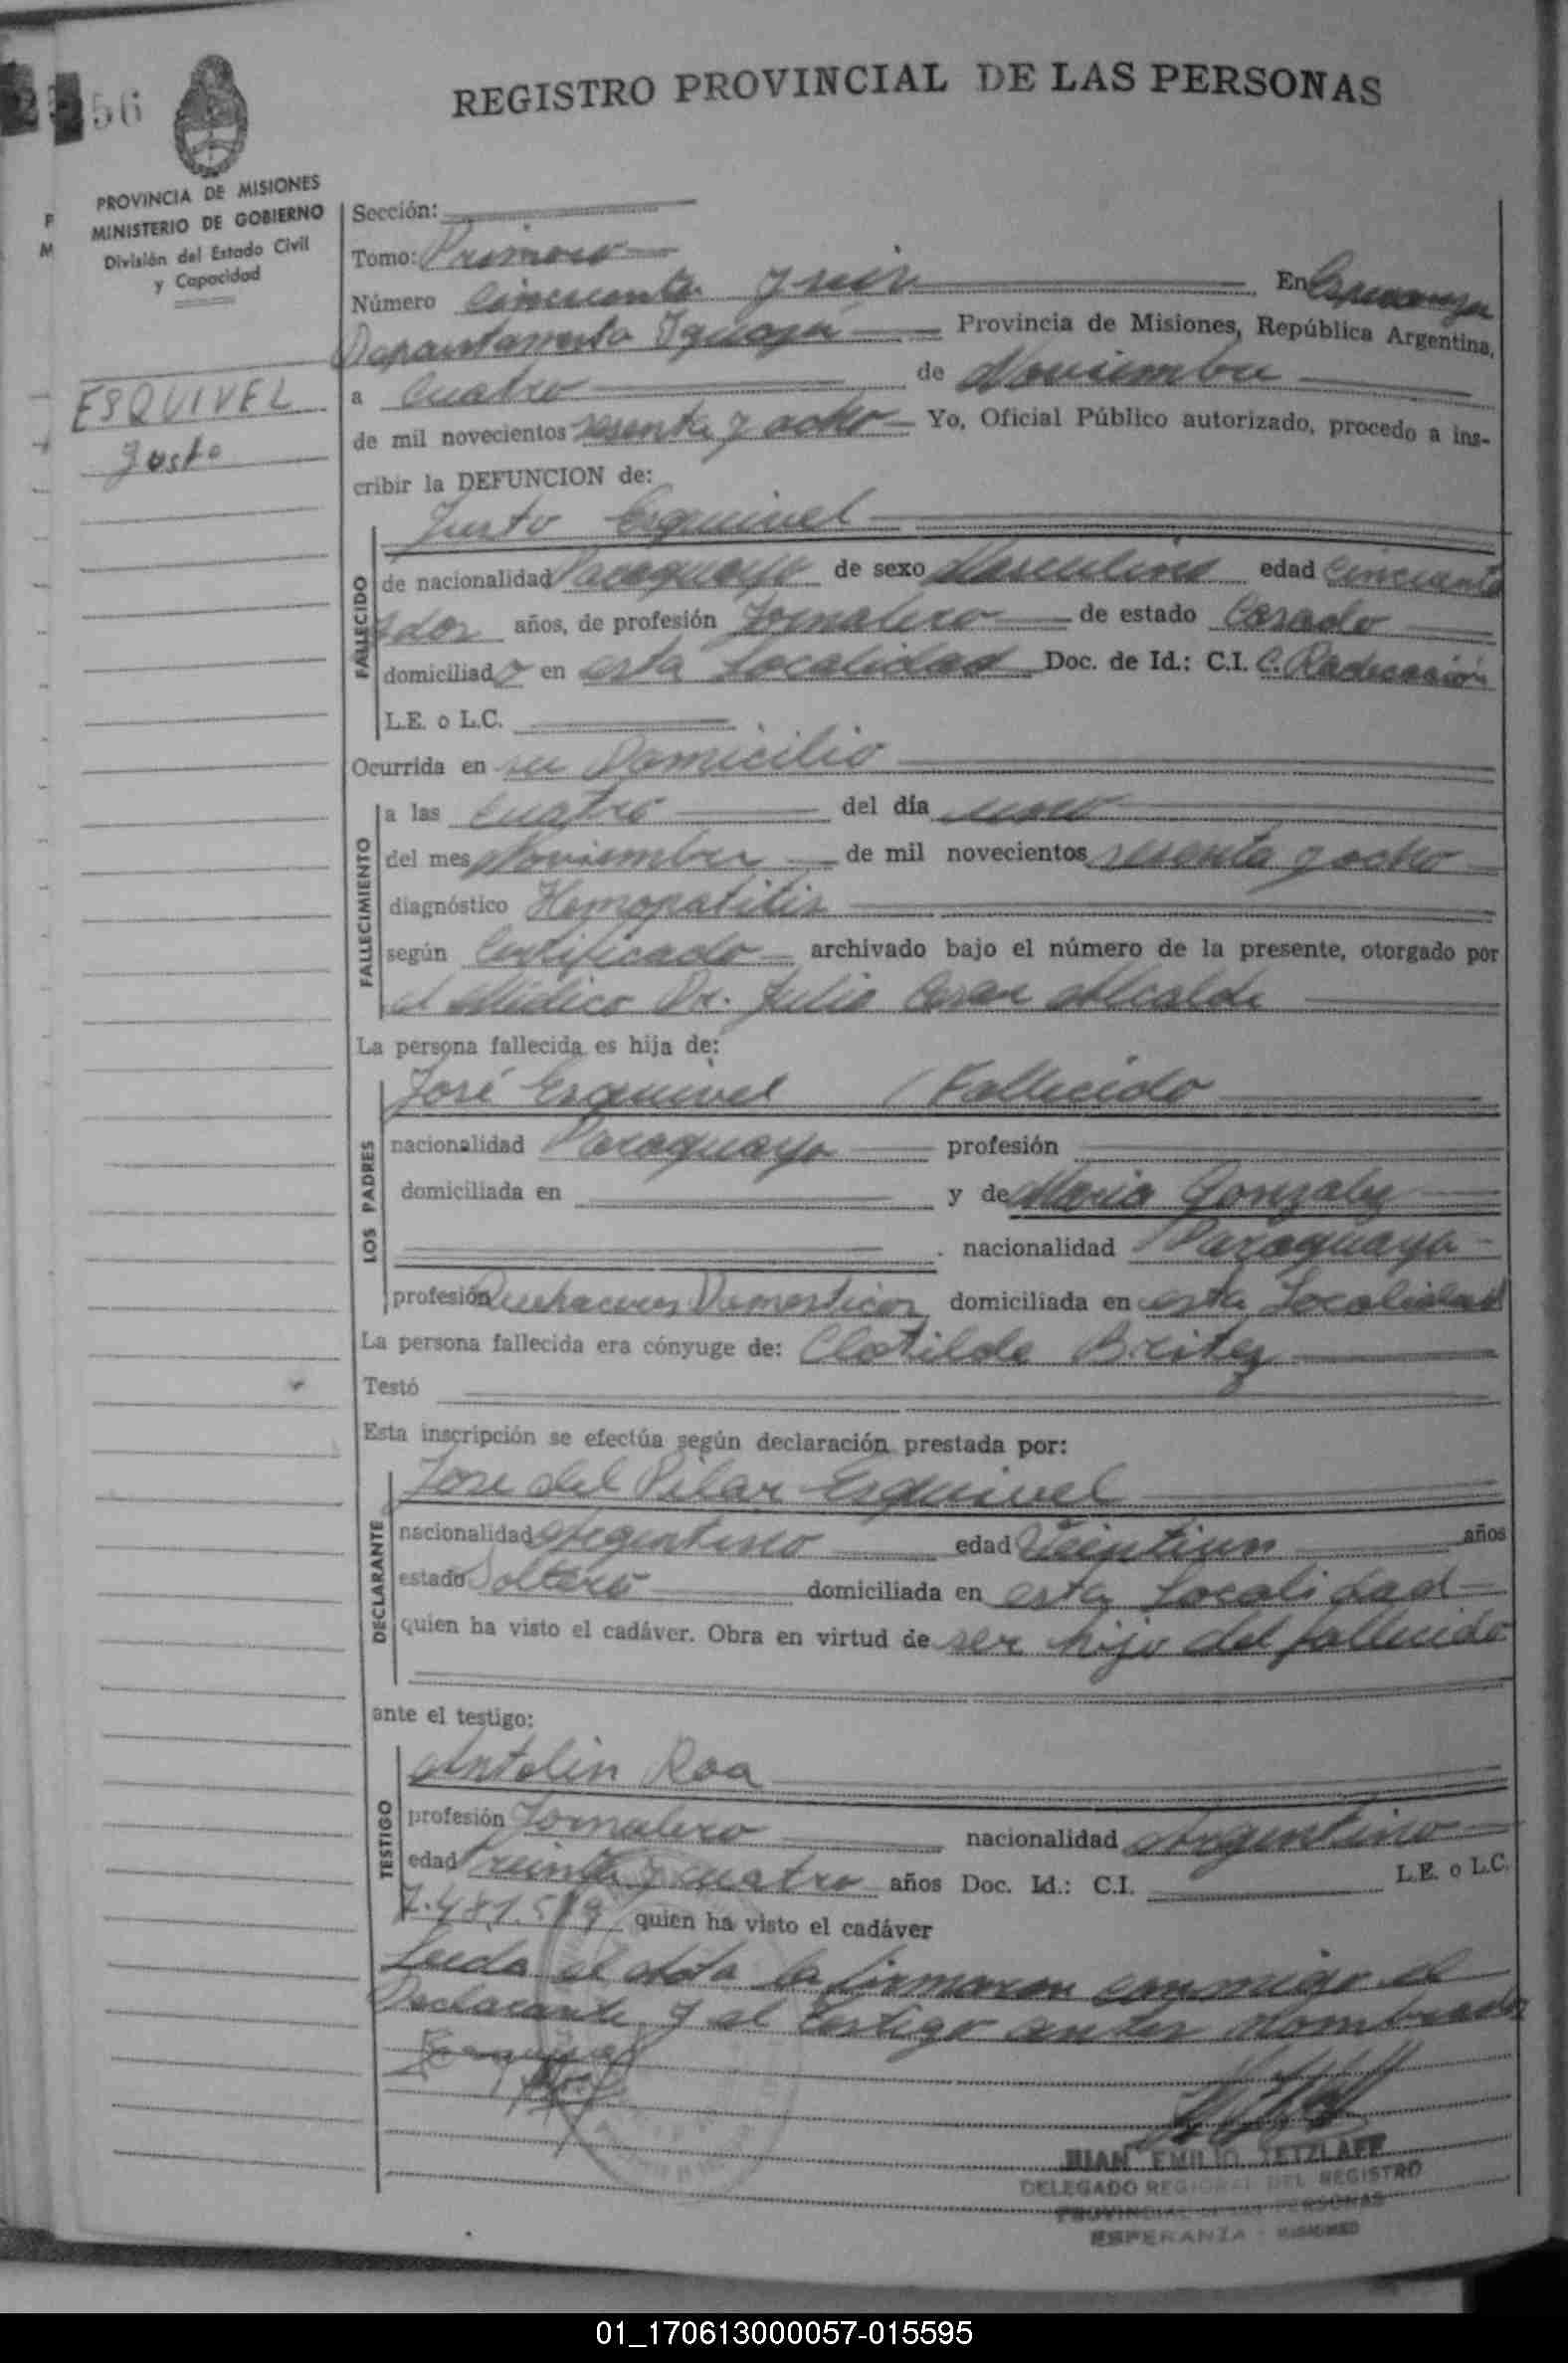 56
REGISTRO PROVINCIAL DE LAS PERSONAS
PROVINCIA DE MISIONES
MINISTERIO DE GOBIERNO
División del Estado Civil
y Capacidad
P
M
ESQUIVEL
Justo
Sección:
Tomo: Primero
Número Cincuenta y seis En Esperanza
Departamento Iguazú Provincia de Misiones, República Argentina,
a Cuatro de Noviembre
de mil novecientos sesenta y ocho Yo, Oficial Público autorizado, procedo a ins-
cribir la DEFUNCION de:
Justo Esquivel
FALLECIDO
de nacionalidad Paraguayo de sexo Masculino edad Cincuenta
y dos años, de profesión Jornalero de estado Casado
domiciliado en esta Localidad Doc. de Id.: C.I. C. Radicación
L.E. o L.C.
Ocurrida en su Domicilio
FALLECIMIENTO
a las Cuatro del día uno
del mes Noviembre de mil novecientos sesenta y ocho
diagnóstico Hemopatitis
según Certificado archivado bajo el número de la presente, otorgado por
el Médico Dr. Julio Cesar Alcalde
La persona fallecida es hija de:
LOS PADRES
José Esquivel / Fallecido
nacionalidad Paraguayo profesión
domiciliada en y de Maria Gonzalez
nacionalidad Paraguaya
profesión Quehaceres Domesticos domiciliada en esta Localidad
La persona fallecida era cónyuge de: Clotilde Britez
Testó
Esta inscripción se efectúa según declaración prestada por:
DECLARANTE
Jose del Pilar Esquivel
nacionalidad Argentino edad Veintiun años
estado Soltero domiciliada en esta Localidad
quien ha visto el cadáver. Obra en virtud de ser hijo del fallecido
ante el testigo:
TESTIGO
Antolin Roa
profesión Jornalero nacionalidad Argentino
edad Treinta y cuatro años Doc. Id.: C.I. L.E. o L.C.
7.481.519 quien ha visto el cadáver
Leida el Acta la firmaron conmigo el
Declarante y el Testigo antes Nombrados
JUAN EMILIO TETZLAFF
DELEGADO REGIONAL DEL REGISTRO
PROVINCIAL DE LAS PERSONAS
ESPERANZA - MISIONES
01_170613000057-015595